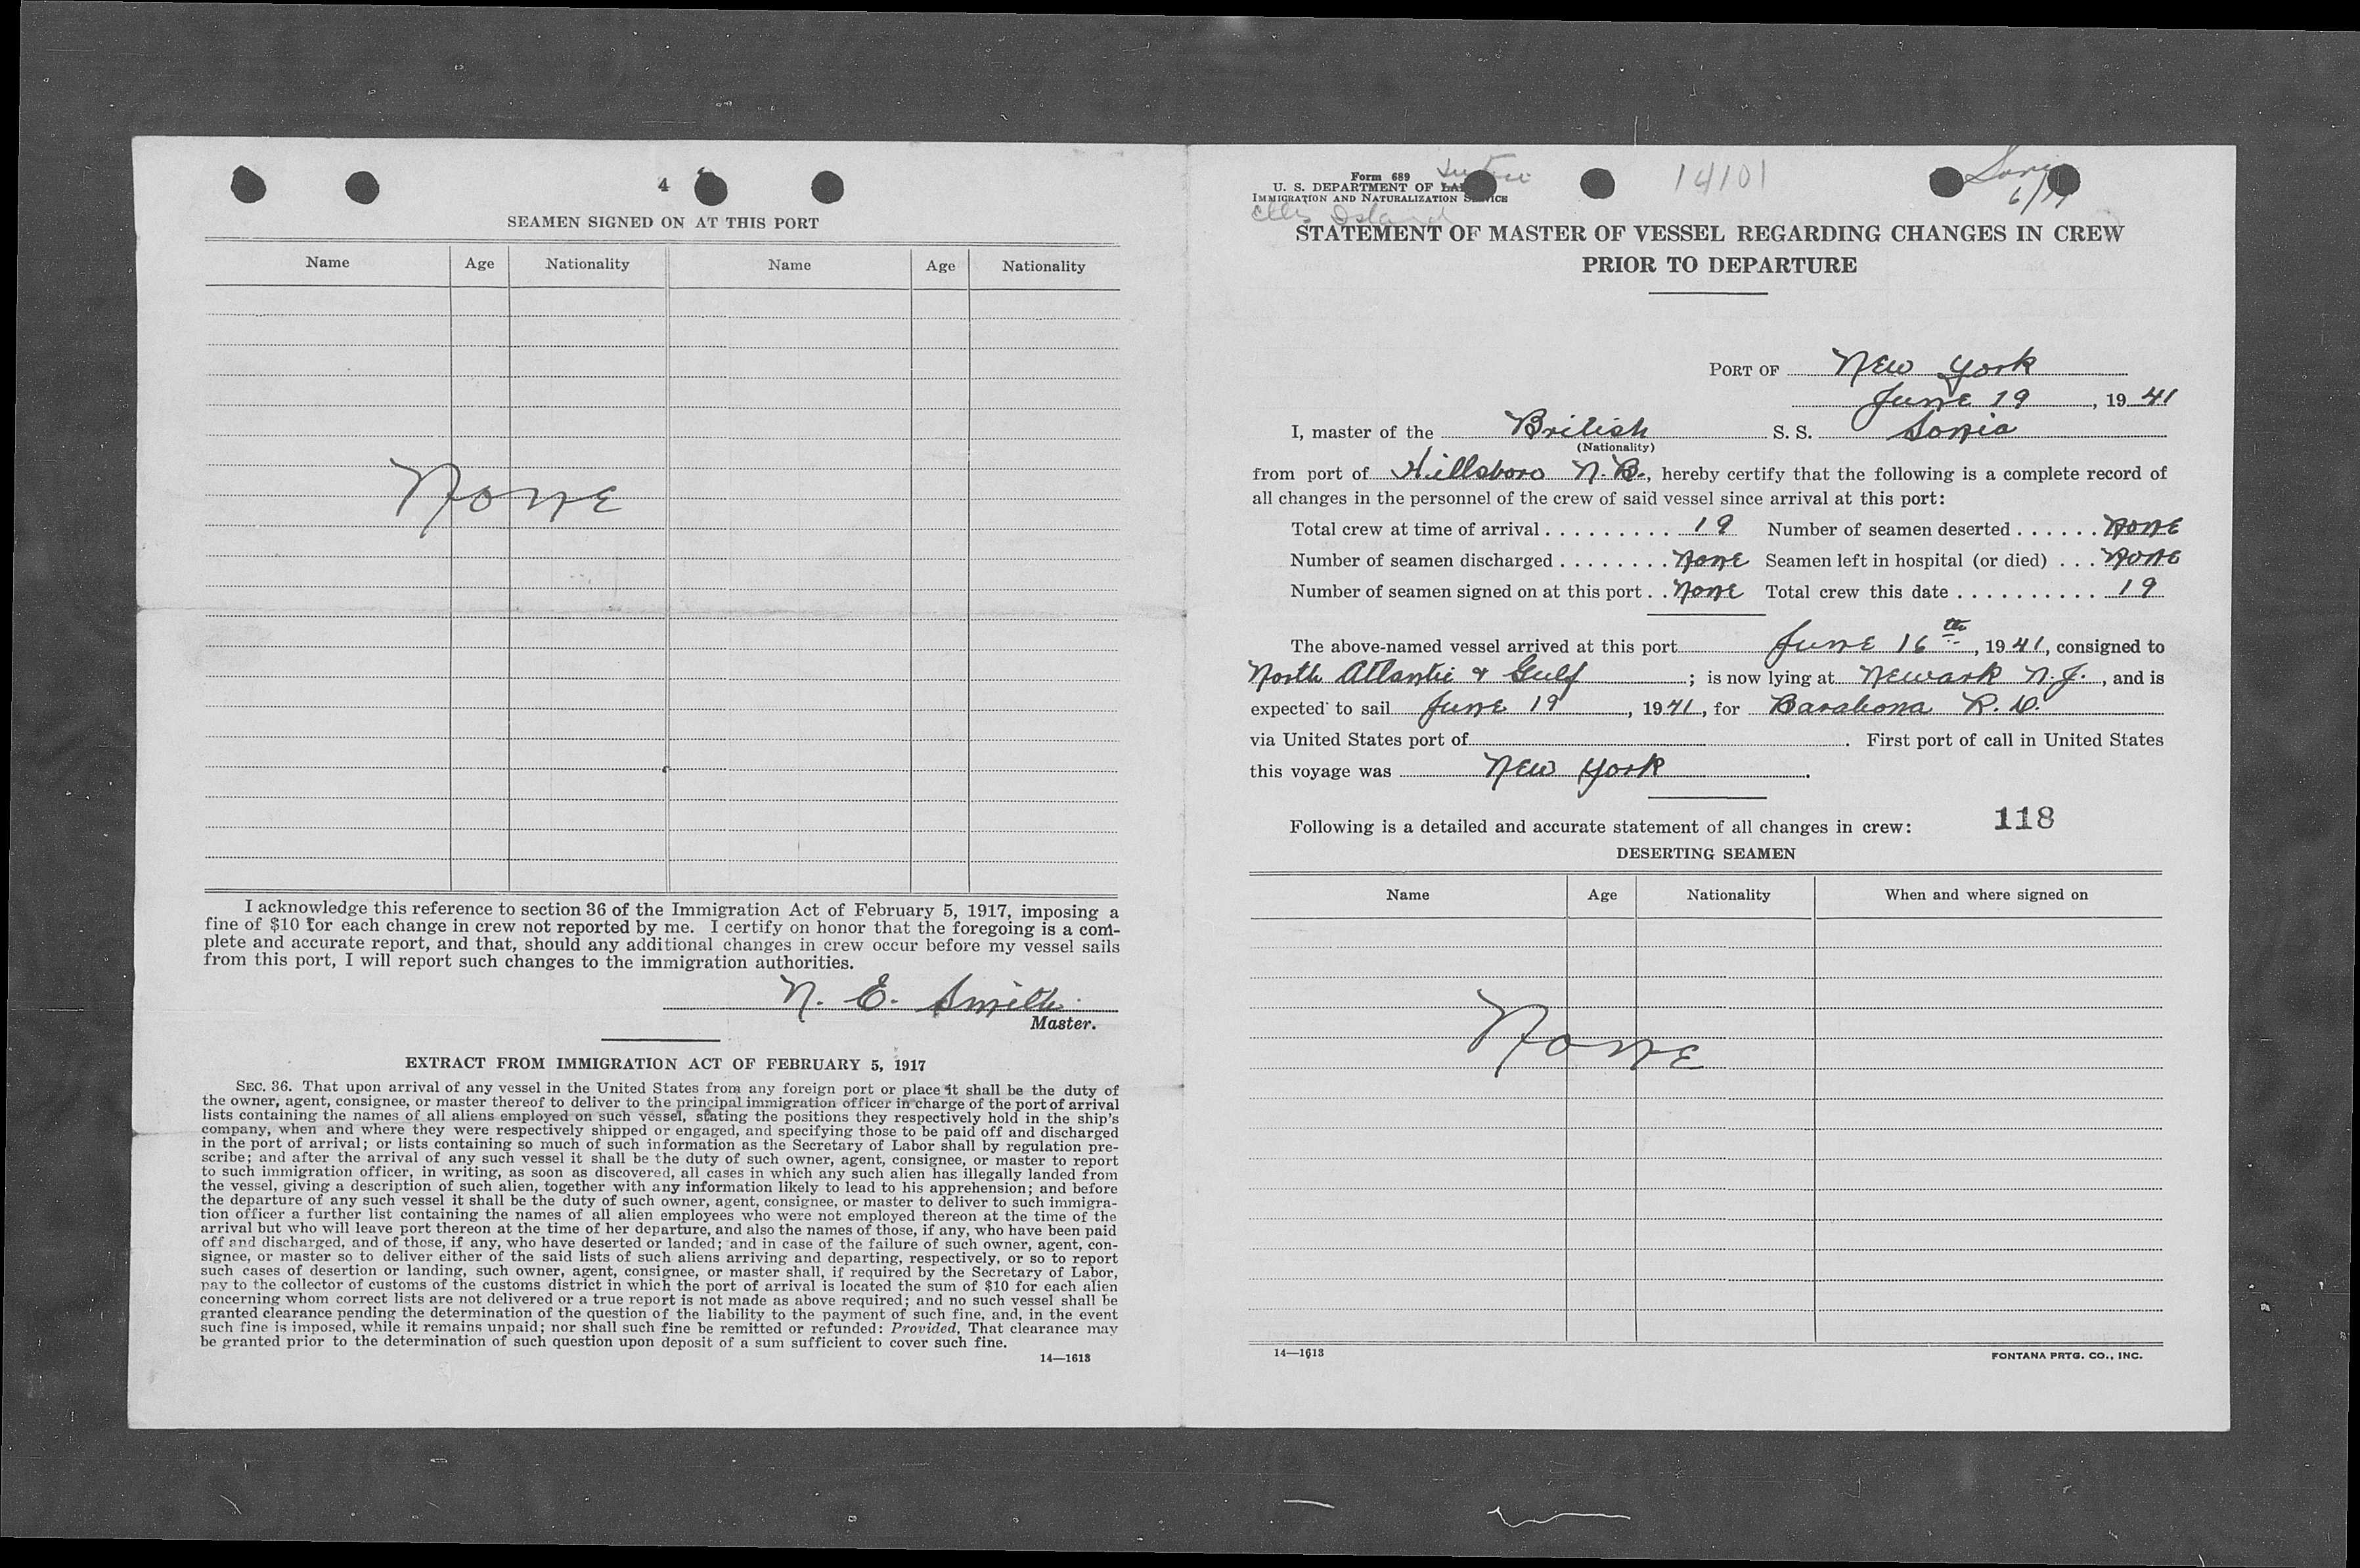 4
SEAMEN SIGNED ON AT THIS PORT
Name Age Nationality Name Age Nationality
None
I acknowledge this reference to section 36 of the Immigration Act of February 5, 1917, imposing a
fine of $10 for each change in crew not reported by me. I certify on honor that the foregoing is a com-
plete and accurate report, and that, should any additional changes in crew occur before my vessel sails
from this port, I will report such changes to the immigration authorities.
N. E. Smith
Master.
EXTRACT FROM IMMIGRATION ACT OF FEBRUARY 5, 1917
SEC. 36. That upon arrival of any vessel in the United States from any foreign port or place it shall be the duty of
the owner, agent, consignee, or master thereof to deliver to the principal immigration officer in charge of the port of arrival
lists containing the names of all aliens employed on such vessel, stating the positions they respectively hold in the ship's
company, when and where they were respectively shipped or engaged, and specifying those to be paid off and discharged
in the port of arrival; or lists containing so much of such information as the Secretary of Labor shall by regulation pre-
scribe; and after the arrival of any such vessel it shall be the duty of such owner, agent, consignee, or master to report
to such immigration officer, in writing, as soon as discovered, all cases in which any such alien has illegally landed from
the vessel, giving a description of such alien, together with any information likely to lead to his apprehension; and before
the departure of any such vessel it shall be the duty of such owner, agent, consignee, or master to deliver to such immigra-
tion officer a further list containing the names of all alien employees who were not employed thereon at the time of the
arrival but who will leave port thereon at the time of her departure, and also the names of those, if any, who have been paid
off and discharged, and of those, if any, who have deserted or landed; and in case of the failure of such owner, agent, con-
signee, or master so to deliver either of the said lists of such aliens arriving and departing, respectively, or so to report
such cases of desertion or landing, such owner, agent, consignee, or master shall, if required by the Secretary of Labor,
pay to the collector of customs of the customs district in which the port of arrival is located the sum of $10 for each alien
concerning whom correct lists are not delivered or a true report is not made as above required; and no such vessel shall be
granted clearance pending the determination of the question of the liability to the payment of such fine, and, in the event
such fine is imposed, while it remains unpaid; nor shall such fine be remitted or refunded: Provided, That clearance may
be granted prior to the determination of such question upon deposit of a sum sufficient to cover such fine.
14—1613
Form 689
U. S. DEPARTMENT OF
IMMIGRATION AND NATURALIZATION SERVICE
Ellis Island
14101
STATEMENT OF MASTER OF VESSEL REGARDING CHANGES IN CREW
PRIOR TO DEPARTURE
PORT OF New York
June 19, 1941
I, master of the British S. S. Sonia
(Nationality)
from port of Hillsboro N. B., hereby certify that the following is a complete record of
all changes in the personnel of the crew of said vessel since arrival at this port:
Total crew at time of arrival . . . . . . . . . 19 Number of seamen deserted . . . . . . None
Number of seamen discharged . . . . . . . . None Seamen left in hospital (or died) . . . None
Number of seamen signed on at this port . . None Total crew this date . . . . . . . . . . 19
The above-named vessel arrived at this port June 16th, 1941, consigned to
North Atlantic & Gulf ; is now lying at Newark N. J. , and is
expected to sail June 19 , 1941, for Barahona R. D.
via United States port of . First port of call in United States
this voyage was New York .
Following is a detailed and accurate statement of all changes in crew: 118
DESERTING SEAMEN
Name Age Nationality When and where signed on
None
14—1613 FONTANA PRTG. CO., INC.